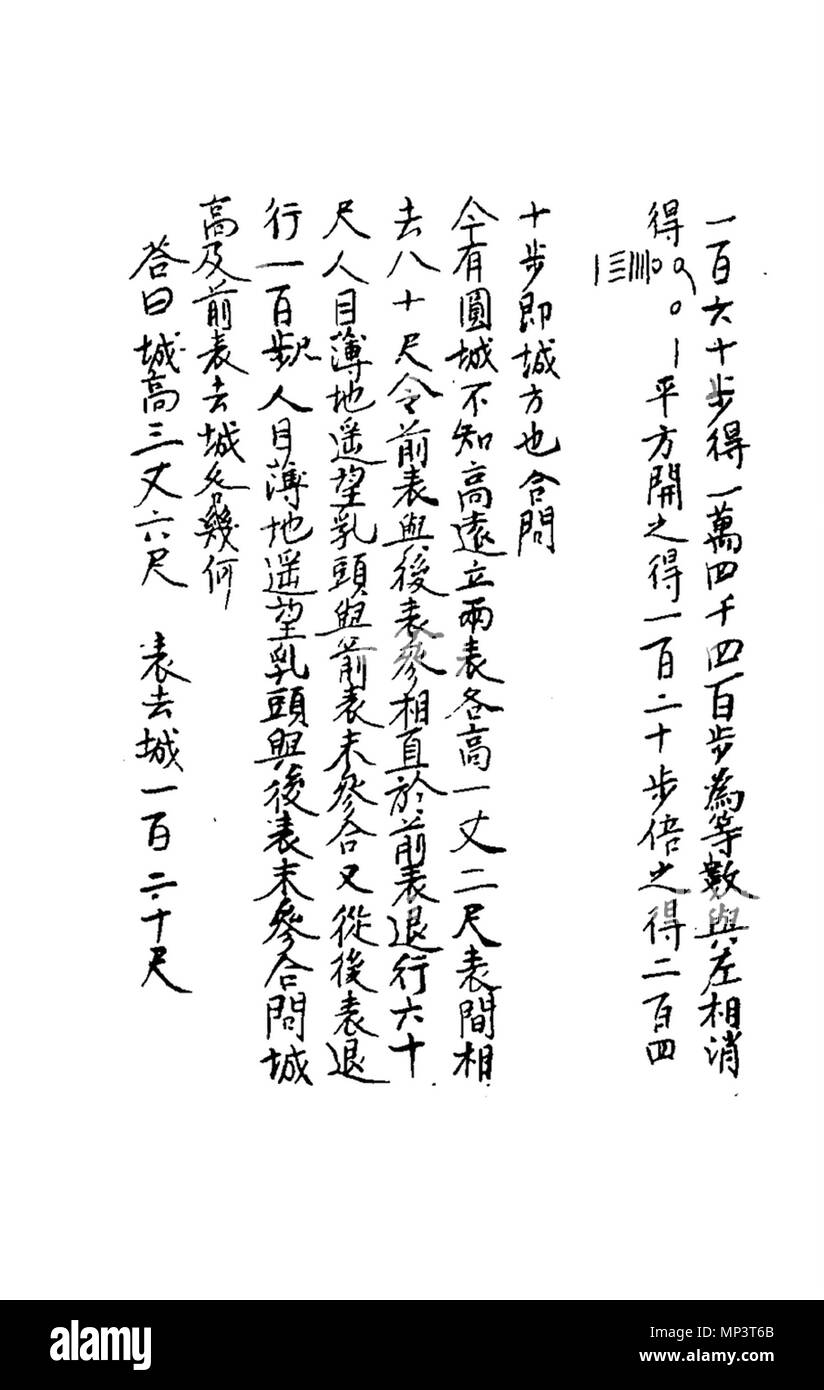 一百六十步得一萬四千四百步為等數與左相消
得
平方開之得一百二十步倍之得二百四
十步即城方也合問
今有圓城不知高遠立兩表各高一丈二尺表間相
去八十尺令前表與後表參相直於前表退行六十
尺人目薄地遥望乳頭與前表末參合又從後表退
行一百步人目薄地遥望乳頭與後表末參合問城
高及前表去城各幾何
答曰城高三丈六尺 表去城一百二十尺
alamy
Image ID: MP3T6B
www.alamy.com